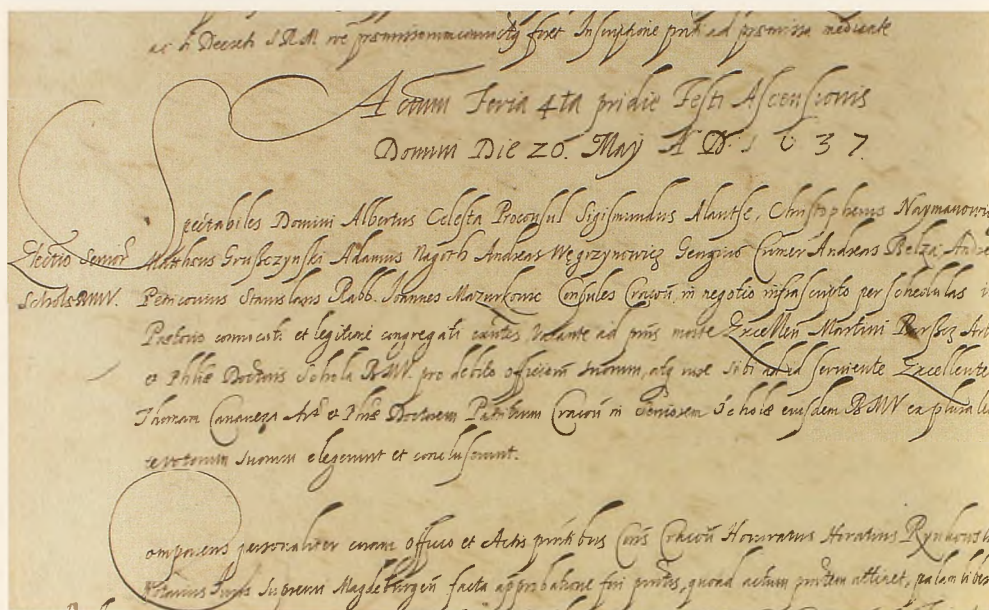 ac Decreti S.R.M. foret Inscriptione ad præmissa mediante
Actum Feria 4ta pridie Festi Ascensionis
Domini Die 20. May A D. 1 6 3 7.
Spectabiles Domini Albertus Celesta Proconsul Sigismundus Alantse, Christophorus Naymanowi
Electio Senior
Mattheus Grusczynski Adamus Nagoth Andreas Węgrzynowicz Georgius Cymer Andreas Belza, Andre
Scholæ BMV.
Petricouius Stanislaus Rabb. Joannes Mazurkowic Consules Cracou. in negotio infrascripto per schedulas
Prætorio conuocati et legitime congregati existentes, Vacante ad præns morte Excellen Martini
et Phliæ Doctoris Schola BMV. pro debito officiorum suorum, atq iure sibi ad id seruiente Excellente
Thomam Art et Phiæ Doctorem Cracou in Seniorem Scholæ eiusdem BMV ex plurali
te votorum suorum elegerunt et concluserunt.
Comparens personaliter coram officio et Actis pntibus Cons Cracou Honoratus Horatius
Notarius Juris Supremi Magdeburgen facta approbatione fori quoad actum attinet, palam liber